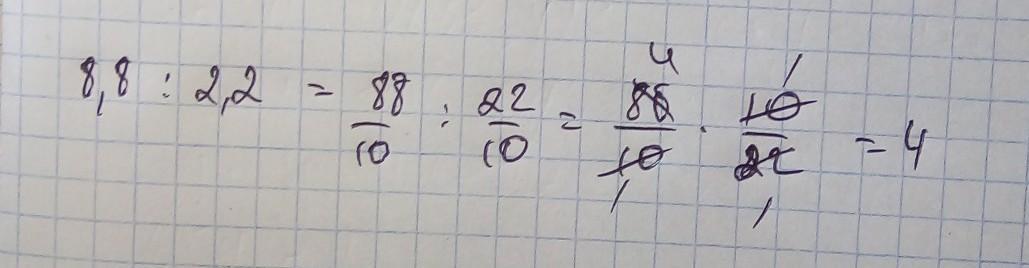 8,8 : 2,2 = 88/10 : 22/10 = 88/10 · 10/22 = 4